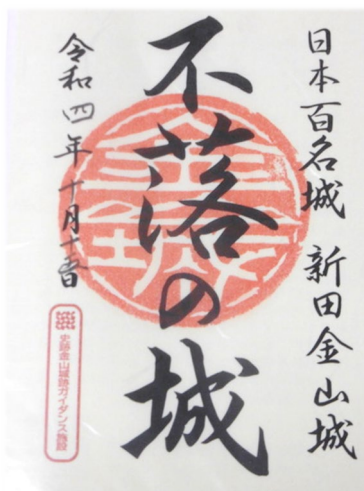 日本百名城 新田金山城
不落の城
令和四年十月十五日
金山城
史跡金山城跡ガイダンス施設